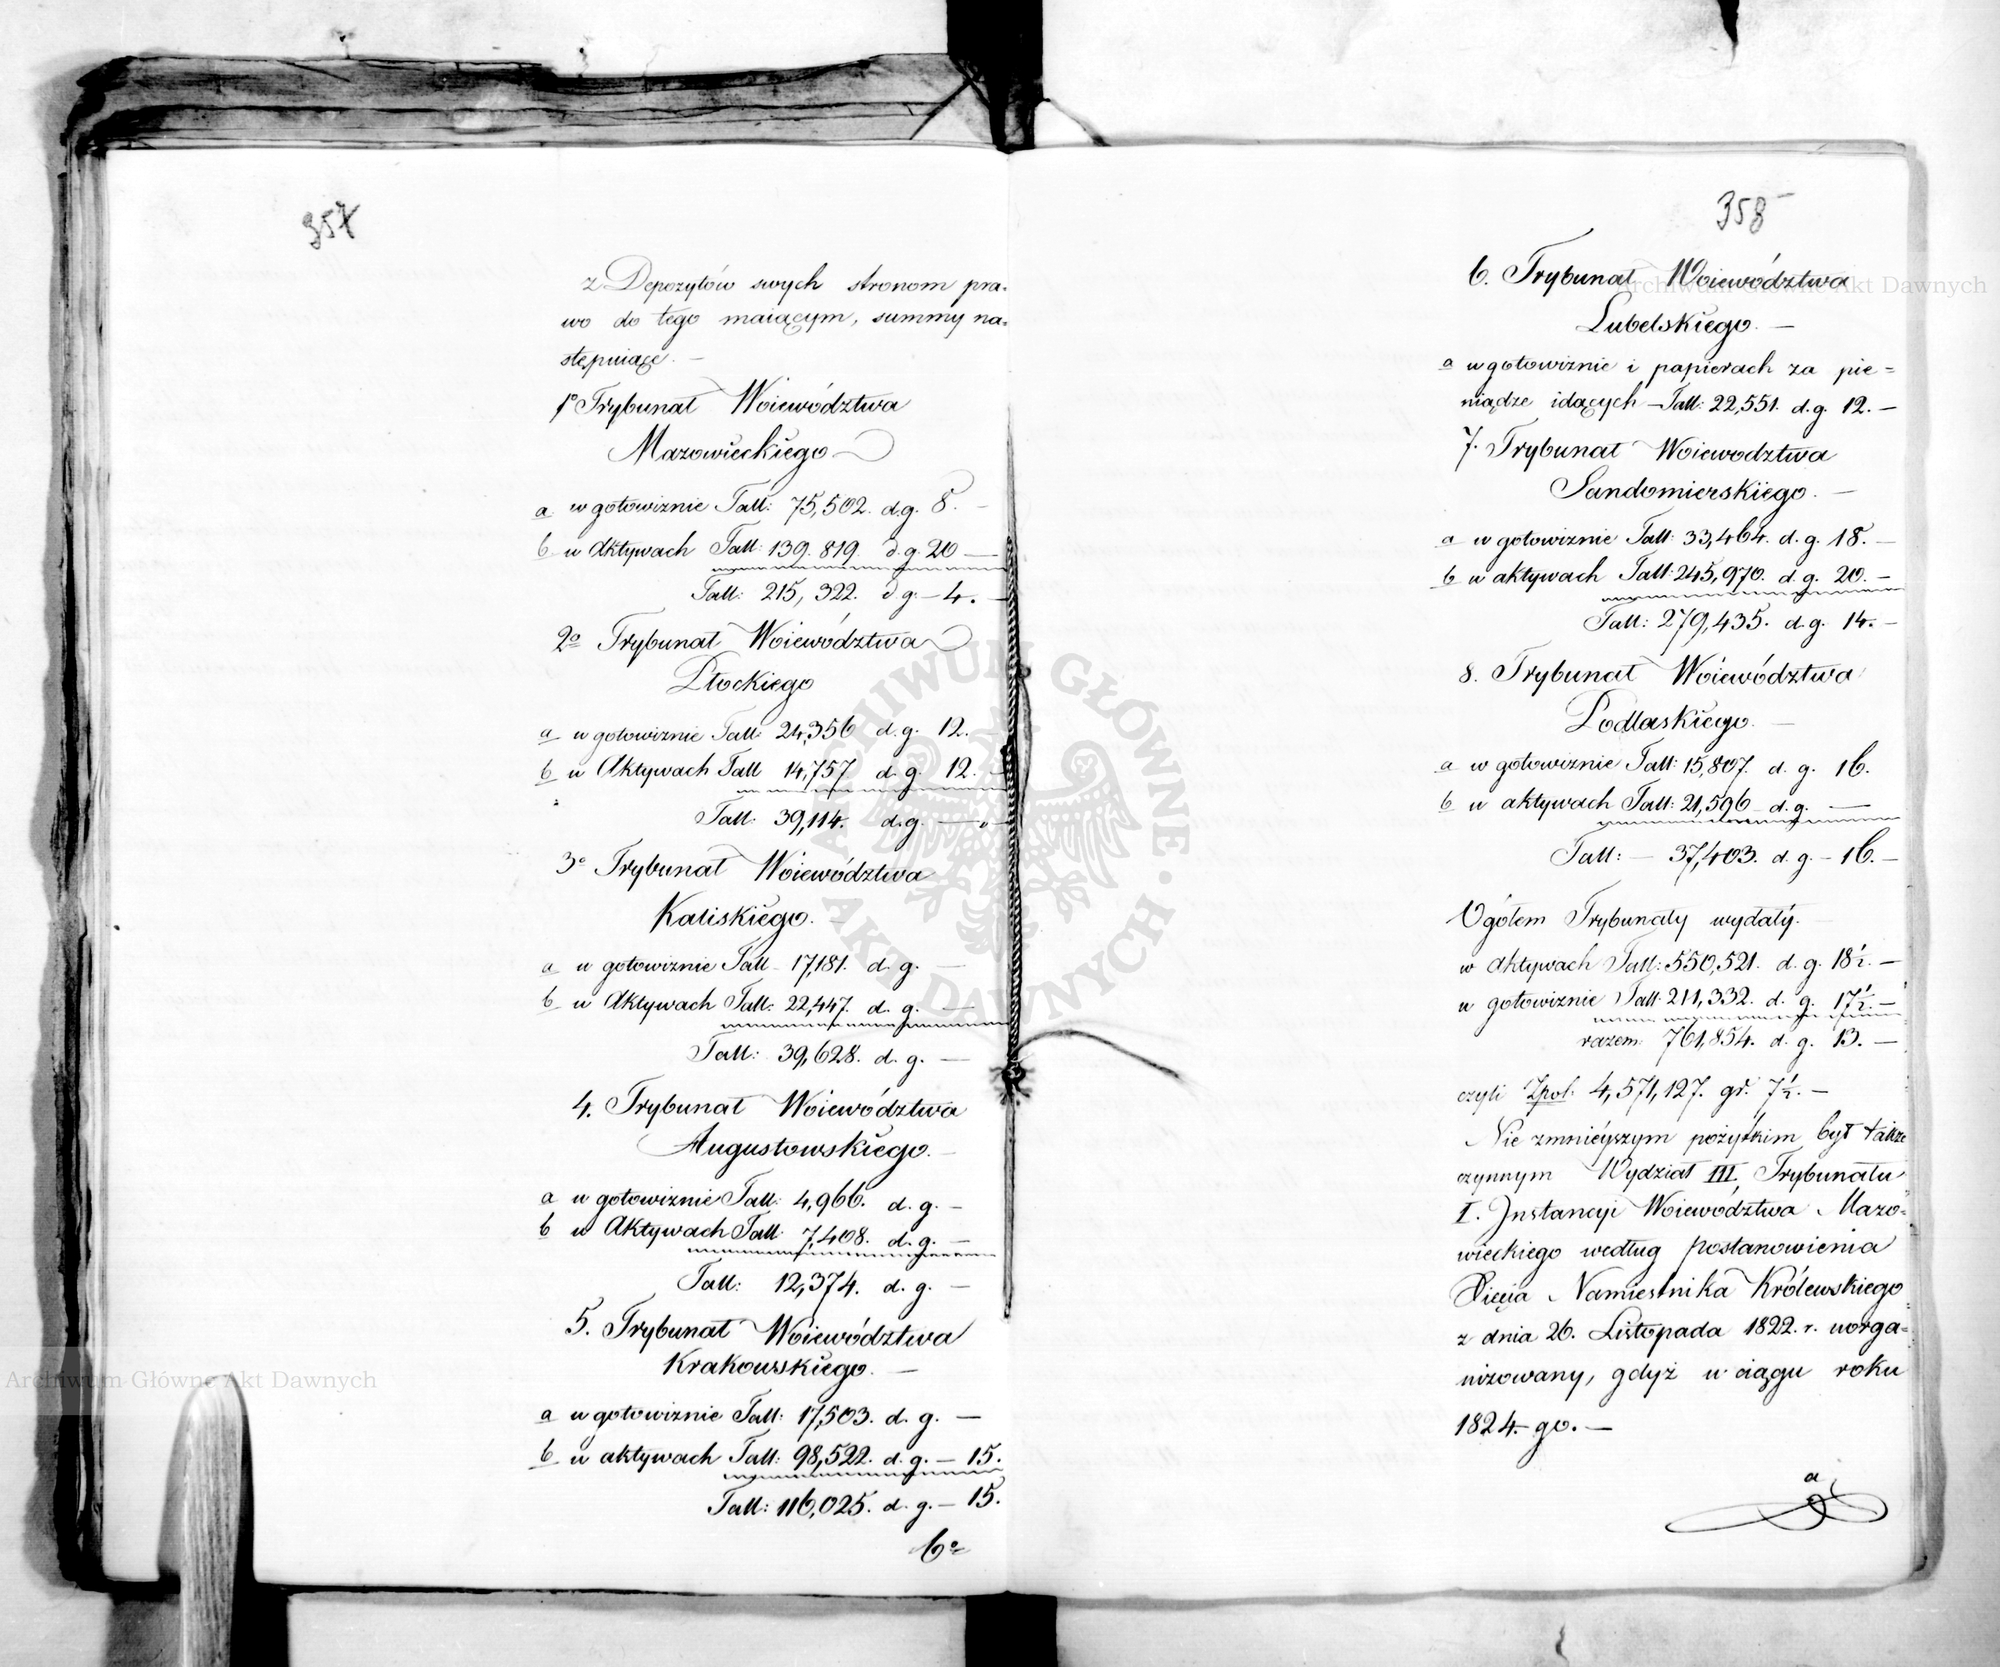 357
z Depozytów swych stronom pra-
wo do tego maiącym, summy na-
stępuiące. —
1º Trybunał Woiewództwa
Mazowieckiego —
a w gotowiznie Tall: 75,502. d.g. 8. —
b w Aktywach Tall: 139.819. d.g. 20 —
Tall: 215,322. d g. — 4. —
2º Trybunał Woiewództwa
Płockiego
a w gotowiznie Tall: 24,356 d.g. 12. —
b w Aktywach Tall 14,757 d.g. 12. —
Tall: 39,114. d.g. — " —
3º Trybunał Woiewództwa
Kaliskiego. —
a w gotowiznie Tall — 17,181. d. g. —
b w Aktywach Tall: 22,447. d. g. —
Tall: 39,628. d. g. —
4. Trybunał Woiewództwa
Augustowskiego. —
a w gotowiznie Tall: 4,966. d. g. —
b w Aktywach Tall: 7,408. d. g. —
Tall: 12,374. d. g. —
5. Trybunał Woiewództwa
Krakowskiego. —
a w gotowiznie Tall: 17,503. d. g. —
b w aktywach Tall: 98,522. d. g. — 15.
Tall: 116,025. d. g. — 15.
6º
358
6. Trybunał Woiewództwa
Lubelskiego. —
a w gotowiznie i papierach za pie=
niądze idących — Tall: 22,551. d.g. 12. —
7. Trybunał Woiewodztwa
Sandomierskiego. —
a w gotowiznie Tall: 33,464. d. g. 18. —
b w aktywach Tall: 245,970. d. g. 20. —
Tall: 279,435. d. g. 14. —
8. Trybunał Woiewództwa
Podlaskiego. —
a w gotowiznie Tall: 15,807. d. g. 16.
b w aktywach Tall: 21,596 d. g. —
Tall: — 37,403. d. g. — 16. —
Ogółem Trybunały wydały. —
w aktywach Tall: 550,521. d. g. 18½. —
w gotowiznie Tall: 211,332. d. g. 17½. —
razem 761,854. d. g. 13. —
czyli Zpol: 4,571,127. gr. 7½. —
Nie zmnieyszym pożytkim był także
czynnym Wydział III, Trybunału
I. Instancyi Woiewództwa Mazo=
wieckiego według postanowienia
Xięcia Namiestnika Królewskiego
z dnia 26. Listopada 1822. r. uorga=
nizowany, gdyż w ciągu roku
1824 — go. —
a
Archiwum Główne Akt Dawnych
Archiwum Główne Akt Dawnych
ARCHIWUM GŁÓWNE AKT DAWNYCH